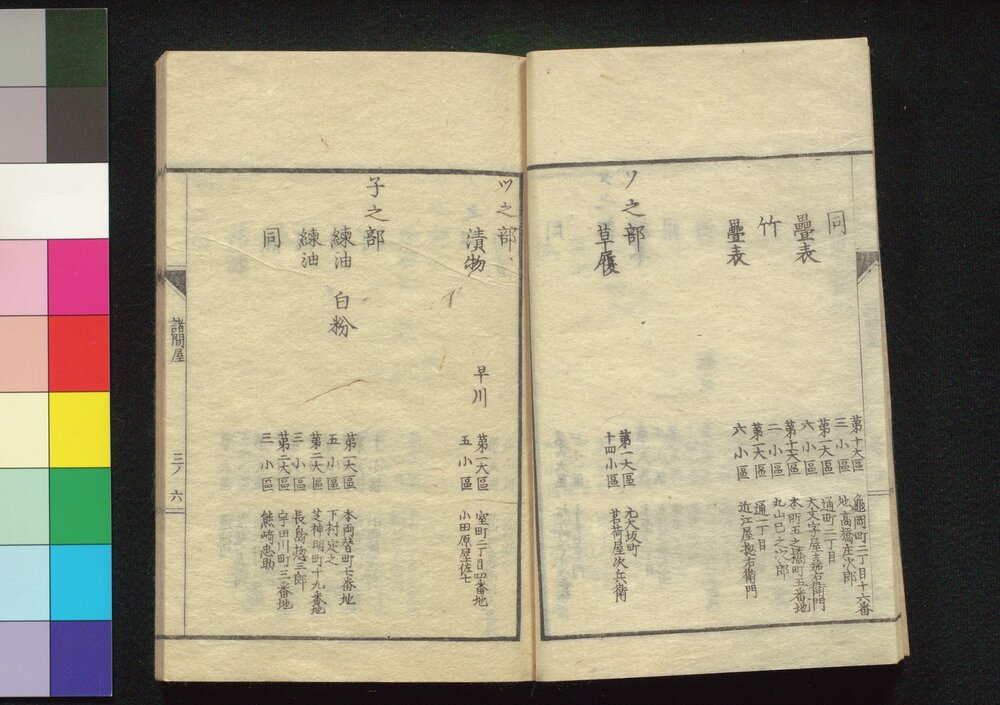 同
第十大區
三小區
龜岡町二丁目十六番
地 高橋庄次郎
疊表
第一大區
六小區
通町二丁目
大文字屋嘉右衛門
竹
第十大區
二小區
本所五之橋町五番地
丸山巳之次郎
疊表
第一大區
六小區
通二丁目
近江屋惣右衛門
ソ之部
草履
第一大區
十四小區
元大坂町
茗荷屋次兵衛
ツ之部
漬物
早川
第一大區
五小區
室町二丁目四番地
小田原屋佐七
子之部
練油 白粉
第一大區
五小區
本両替町七番地
下村定之
練油
第二大區
三小區
芝神明町十九番地
長島惣三郎
同
第二大區
三小區
宇田川町三番地
熊崎忠助
諸問屋
三ノ六